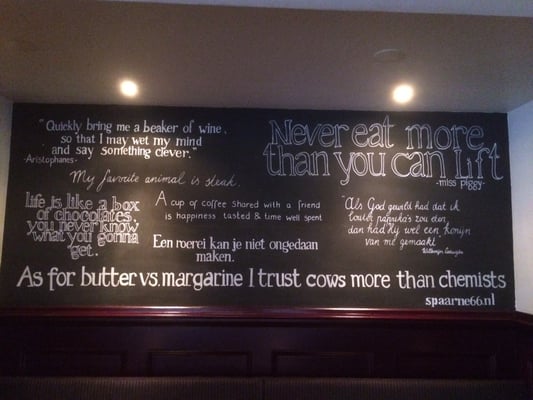 "Quickly bring me a beaker of wine,
so that I may wet my mind
and say something clever."
-Aristophanes-
Never eat more
than you can lift
-miss piggy-
My favorite animal is steak.
life is like a box
of chocolates.
you never know
what you gonna
get.
A cup of coffee shared with a friend
is happiness tasted & time well spent
"Als God gewild had dat ik
louter paprika's zou eten,
dan had hij wel een konijn
van me gemaakt"
Een roerei kan je niet ongedaan
maken.
As for butter vs. margarine I trust cows more than chemists
spaarne66.nl